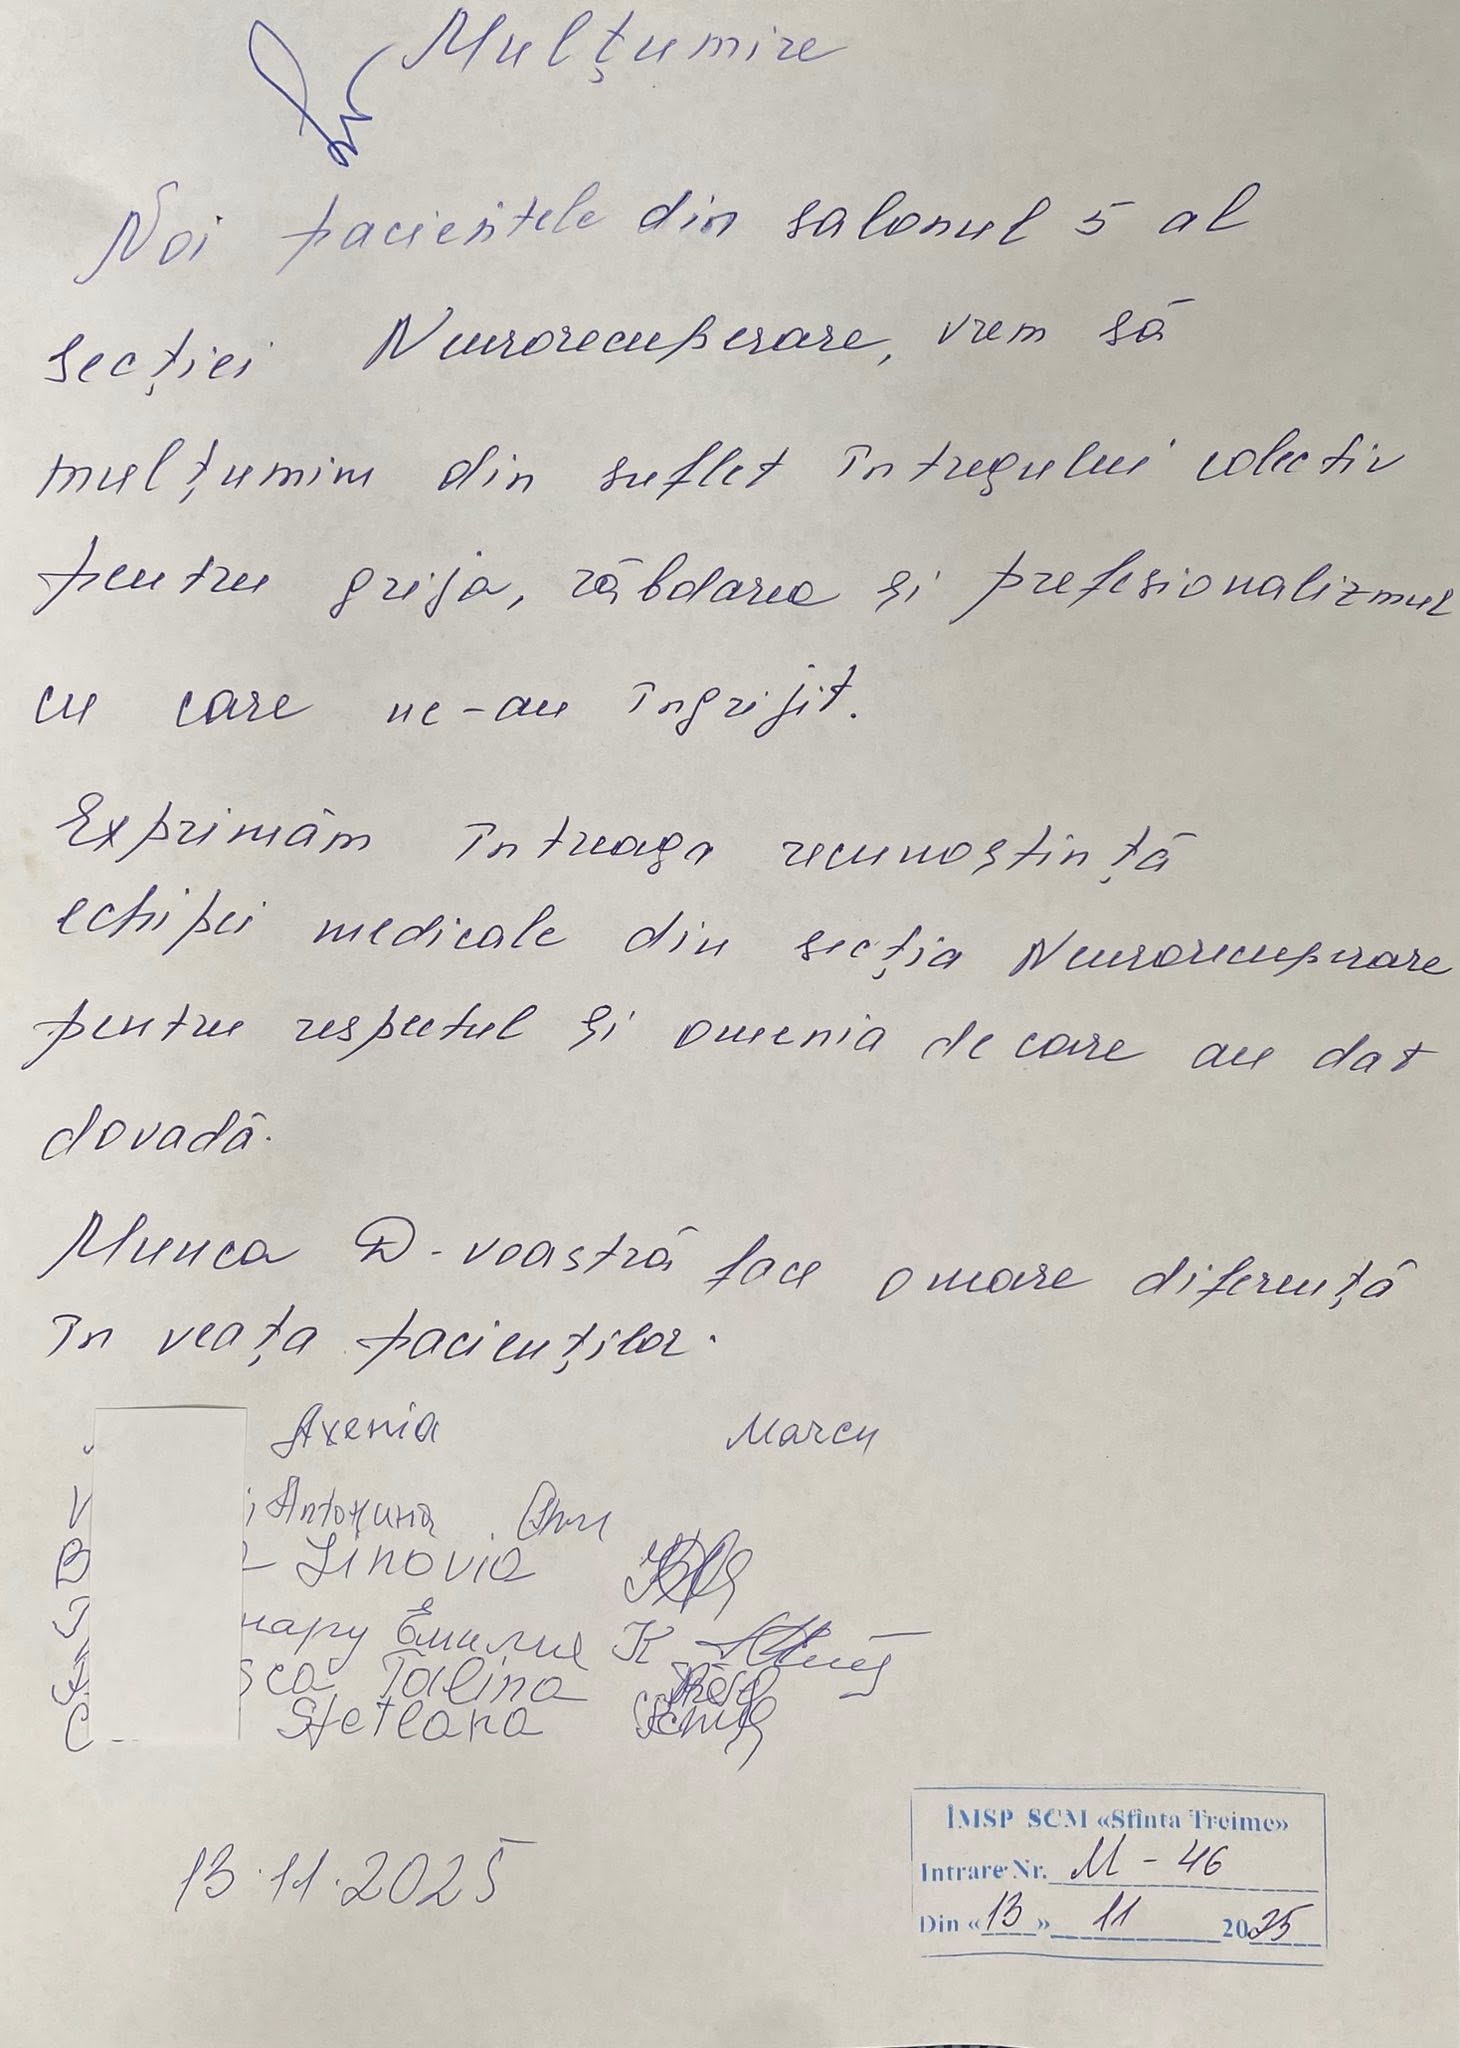 Mulțumire
Noi pacientele din salonul 5 al
secției Neurorecuperare, vrem să
mulțumim din suflet întregului colectiv
pentru grija, răbdarea și prefesionalizmul
cu care ne-au îngrijit.
Exprimăm întreaga recunoștință
echipei medicale din secția Neurorecuperare
pentru respectul și omenia de care au dat
dovadă.
Munca D-voastră face o mare diferență
în veața pacienților.
Axenia Marcu
V Antonina
B Zinovia
нару Емилия
sca Galina
C Svetlana
13.11.2025
ÎMSP SCM «Sfînta Treime»
Intrare Nr. M-46
Din «13» 11 2025